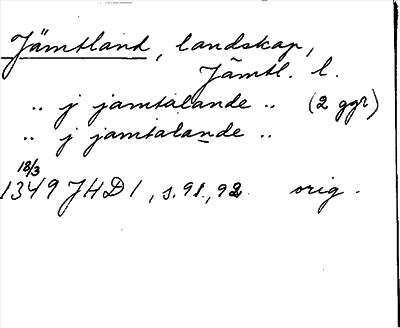 Jämtland, landskap,
Jämtl. l.
.. j jamtalande .. (2 ggr)
.. j jamtalande ..
18/3
1349 JHD 1, s. 91, 92. orig.